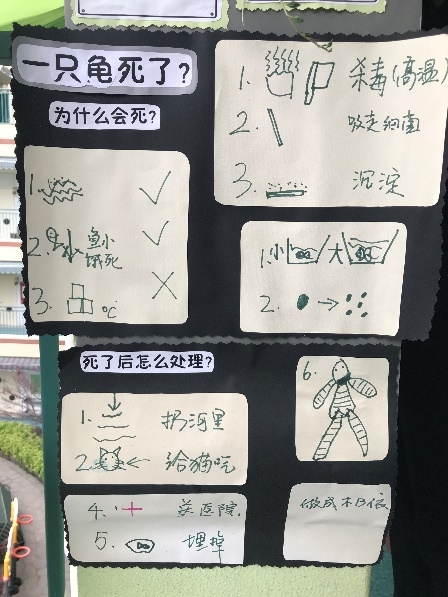 一只龟死了?
为什么会死?
1.
2. 鱼小
饿死
3. 0c
1. 杀毒(高温)
2. 吸走细菌
3. 沉淀
1. 小 大
2.
死了后怎么处理?
1. 扔河里
2. 给猫吃
4. 医院
5. 埋掉
6.
做成木乃伊